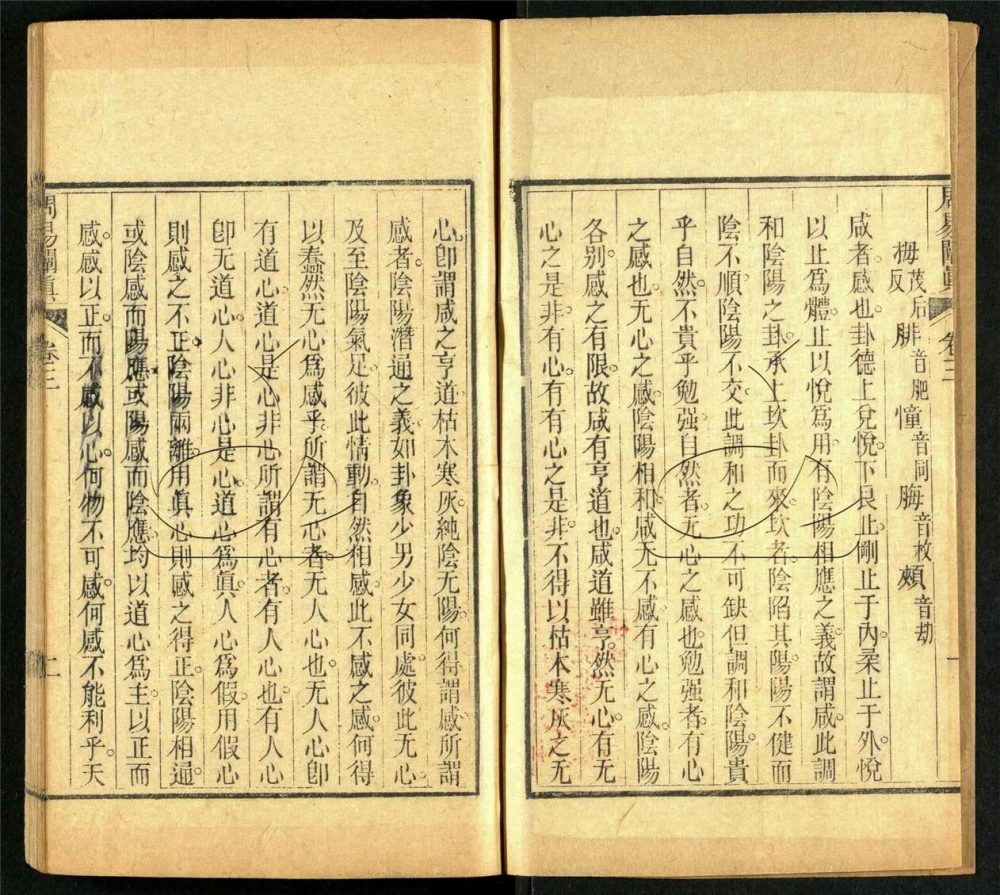 周易闡眞 卷三
梅茂后反 腓音肥 憧音同 脢音枚 頰音刼
咸者感也卦德上兌悅下艮止剛止于內柔止于外悅
以止爲體止以悅爲用有陰陽相應之義故謂咸此調
和陰陽之卦承上坎卦而來坎者陰陷其陽陽不健而
陰不順陰陽不交此調和之功不可缺但調和陰陽貴
乎自然不貴乎勉强自然者无心之感也勉强者有心
之感也无心之感陰陽相和咸无不感有心之感陰陽
各別感之有限故咸有亨道也咸道雖亨然无心有无
心之是非有心有有心之是非不得以枯木寒灰之无
心卽謂咸之亨道枯木寒灰純陰无陽何得謂感所謂
感者陰陽潛通之義如卦象少男少女同處彼此无心
及至陰陽氣足彼此情動自然相感此不感之感何得
以蠢然无心爲感乎所謂无心者无人心也无人心卽
有道心道心是心非心所謂有心者有人心也有人心
卽无道心人心非心是心道心爲眞人心爲假用假心
則感之不正陰陽兩離用眞心則感之得正陰陽相通
或陰感而陽應或陽感而陰應均以道心爲主以正而
感感以正而不感以心何物不可感何感不能利乎天
周易闡眞 卷三